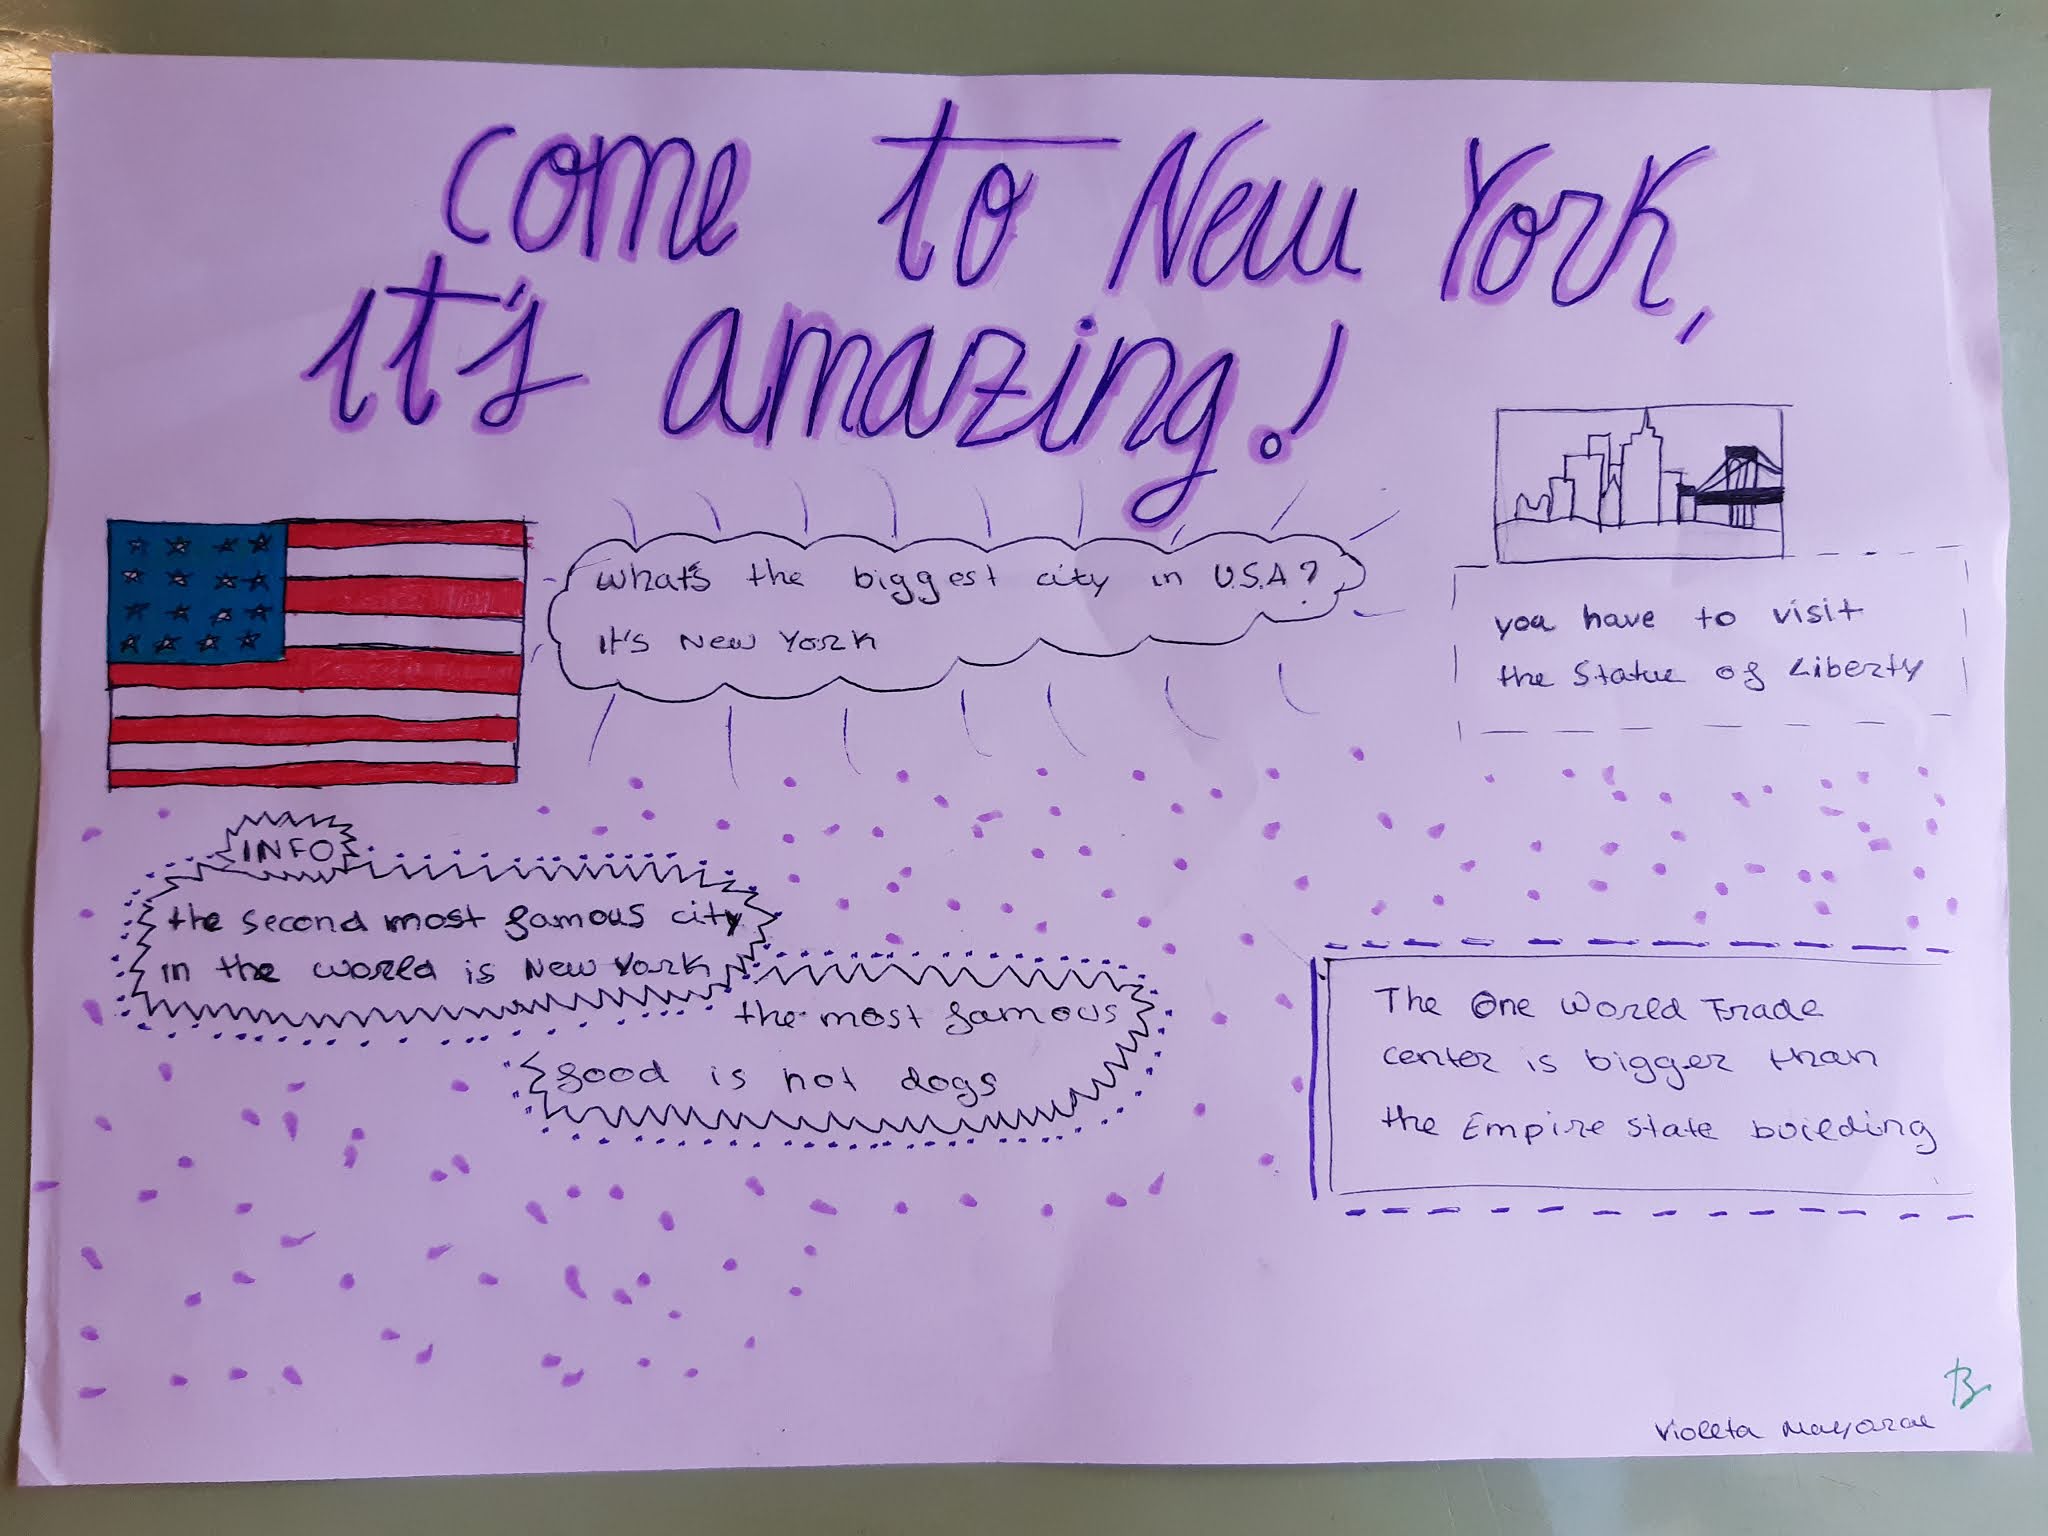 Come to New York,
it's amazing!
What's the biggest city in U.S.A?
It's New York
you have to visit
the Statue of Liberty
INFO
the second most famous city
in the world is New York
the most famous
food is hot dogs
The One World Trade
center is bigger than
the Empire State building
B
Violeta Mayoral